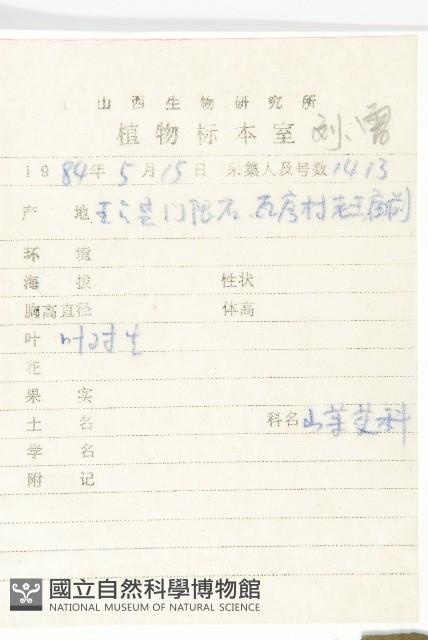 山西生物研究所
植物标本室 刘、曾
1984年5月15日 采集人及号数1413
产 地 门限石、瓦房村老
环 境
海 拔 性状
胸高直径 体高
叶 叶对生
花
果 实
土 名 科名 山茱萸科
学 名
附 记
國立自然科學博物館
NATIONAL MUSEUM OF NATURAL SCIENCE